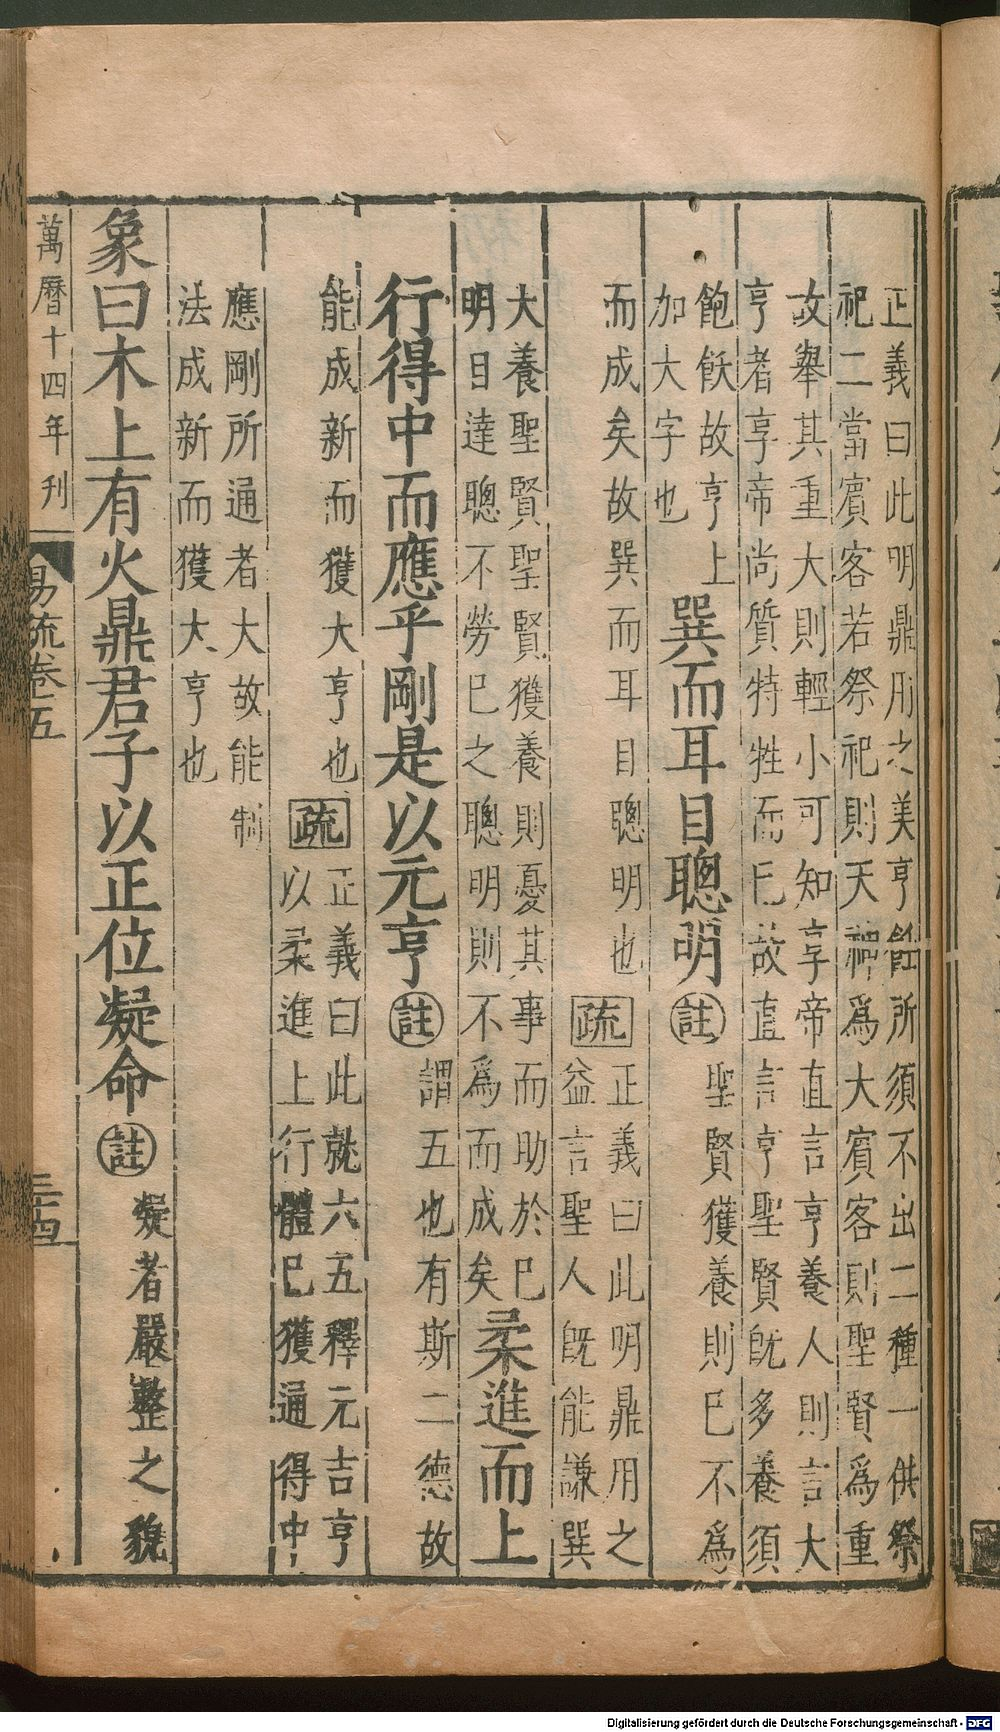 正義曰此明鼎用之美亨飪所須不出二種一供祭
祀二當賓客若祭祀則天神爲大賓客則聖賢爲重
故舉其重大則輕小可知享帝直言亨養人則言大
亨者享帝尚質特牲而已故直言亨聖賢既多養須
飽飫故亨上
加大字也
巽而耳目聰明
註
聖賢獲養則己不爲
而成矣故巽而耳目聰明也
疏
正義曰此明鼎用之
益言聖人既能謙巽
大養聖賢聖賢獲養則憂其事而助於已
明目達聰不勞已之聰明則不爲而成矣
柔進而上
行得中而應乎剛是以元亨
註
謂五也有斯二德故
能成新而獲大亨也
疏
正義曰此就六五釋元吉亨
以柔進上行體已獲通得中
應剛所通者大故能制
法成新而獲大亨也
象曰木上有火鼎君子以正位凝命
註
凝者嚴整之貌
萬曆十四年刊
易疏卷五
三十四
Digitalisierung gefördert durch die Deutsche Forschungsgemeinschaft - DFG